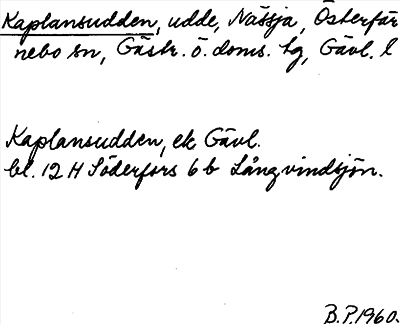 Kaplansudden, udde, Nässja, Österfär
nebo sn, Gästr. ö. doms. tg, Gävl. l
Kaplansudden, ek Gävl.
bl. 12 H Söderfors 6 b Långvindsjön.
B.P. 1960.